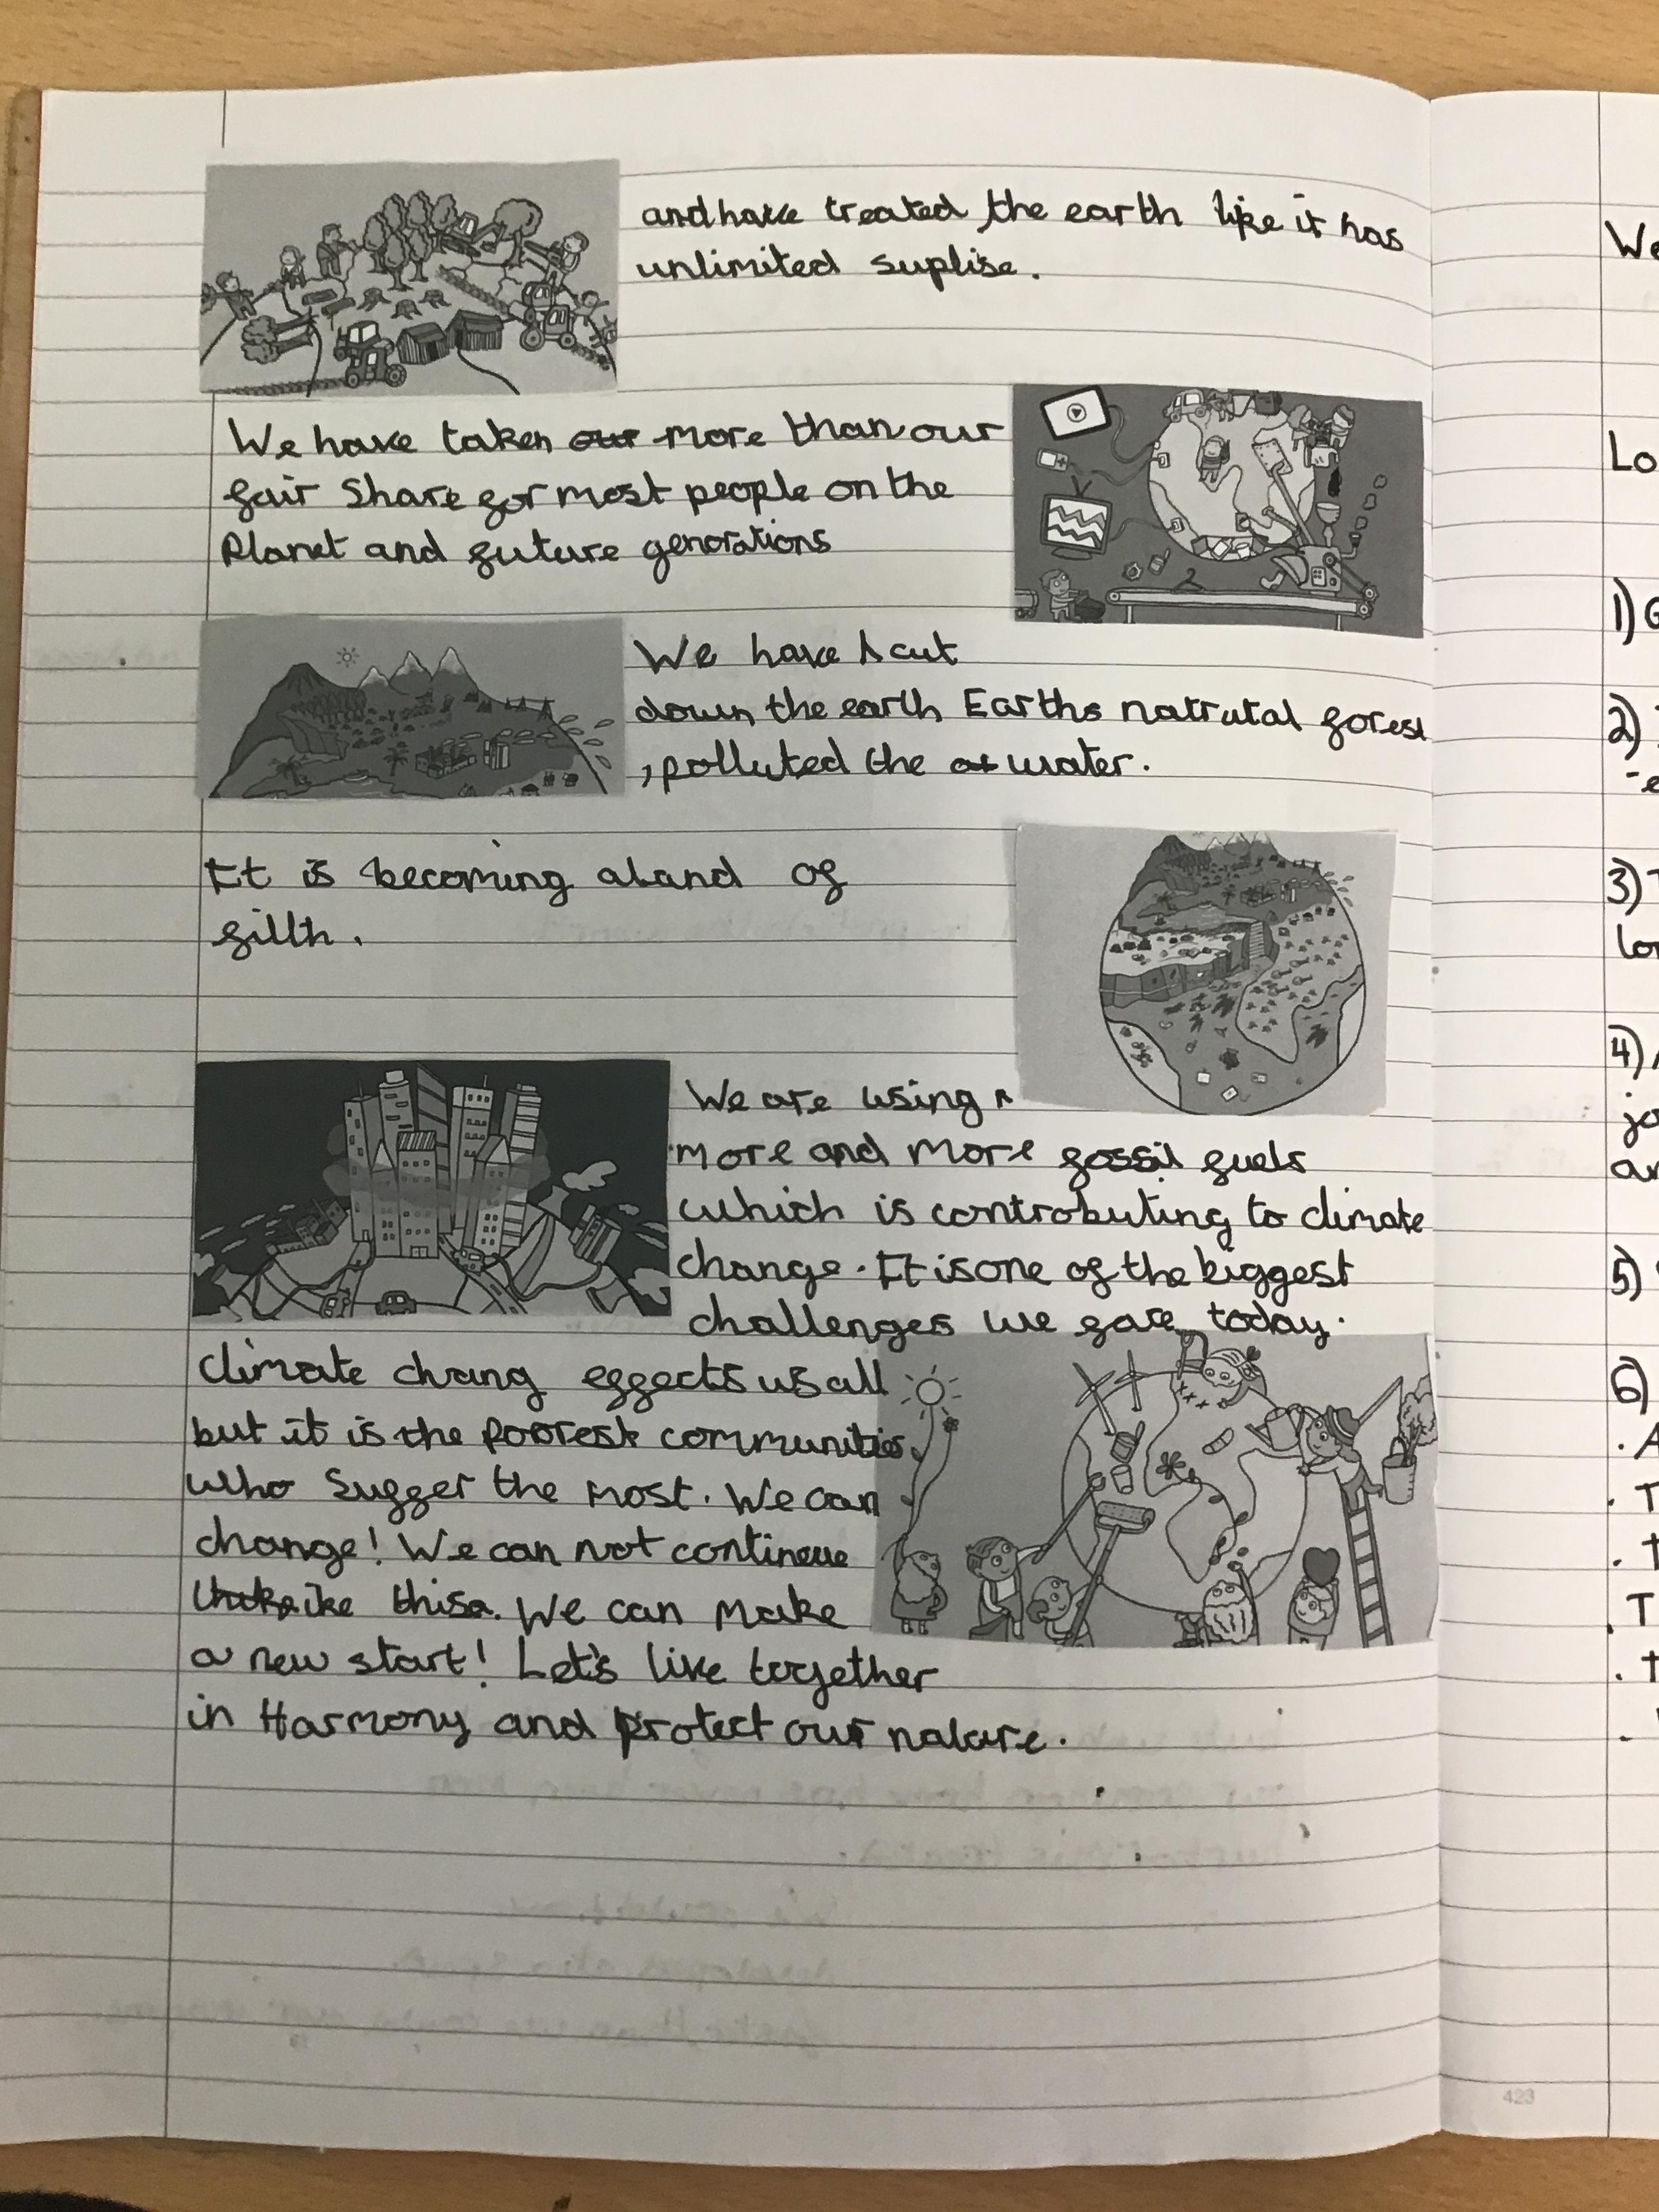 and have treated the earth like it has
unlimited suplise.
We have taken our more than our
fair Share for most people on the
Planet and future generations
We have cut
down the earth Earths natrutal forest
, polluted the at water.
It is becoming a land of
filth.
We are using
more and more fossil fuels
which is controbuting to climate
change. It is one of the biggest
challenges we face today.
climate chang effects us all
but it is the Poorest communities
who suffer the most. We can
change! We can not contineue
like this. We can make
a new start! Let's live together
in Harmony and protect our nature.
423
We
Lo
1) G
2)
-e
3) T
lo
4) A
jo
an
5)
6)
. A
. T
. t
. T
. t